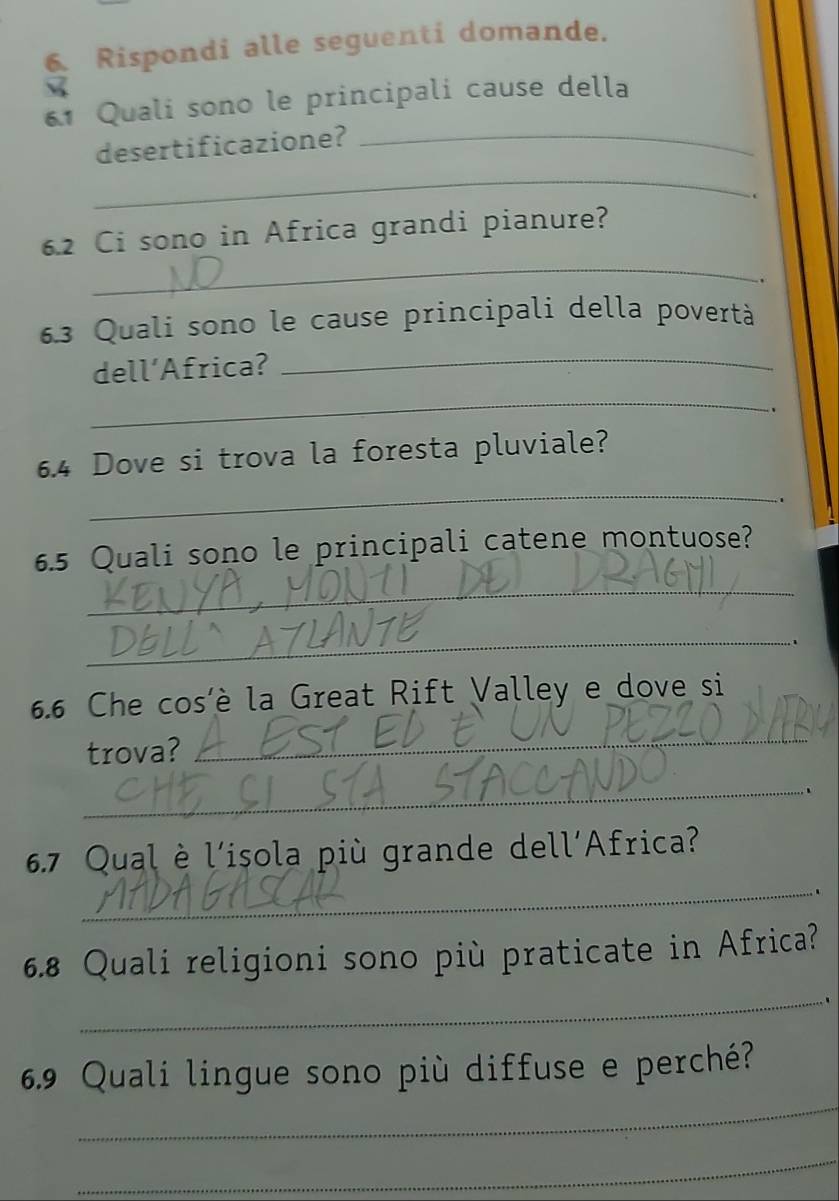 6. Rispondi alle seguenti domande.
6.1 Quali sono le principali cause della
desertificazione?
6.2 Ci sono in Africa grandi pianure?
NO
6.3 Quali sono le cause principali della povertà
dell'Africa?
6.4 Dove si trova la foresta pluviale?
6.5 Quali sono le principali catene montuose?
KENYA, MONTI DEI DRAGHI,
DELL' ATLANTE
6.6 Che cos'è la Great Rift Valley e dove si
trova? A EST ED È UN PEZZO
CHE SI STA STACCANDO
6.7 Qual è l'isola più grande dell'Africa?
MADAGASCAR
6.8 Quali religioni sono più praticate in Africa?
6.9 Quali lingue sono più diffuse e perché?